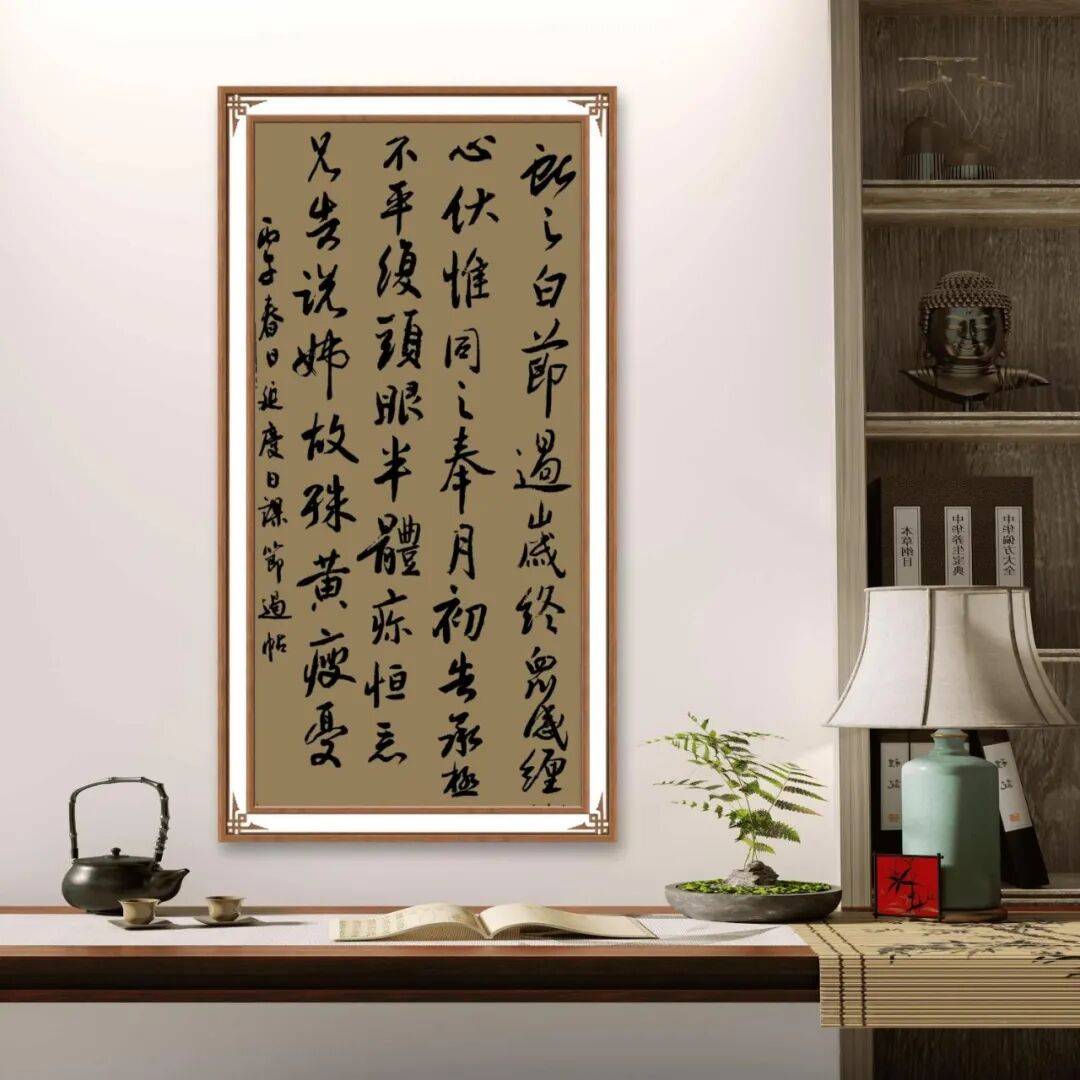 獻之白節過歲終眾感纏
心伏惟同之奉月初告承極
不平復頭眼半體疼恒
兄告說姊故殊黃瘦憂
丙午春日延慶日課節過帖
本草纲目
中华养生宝典
中华偏方大全